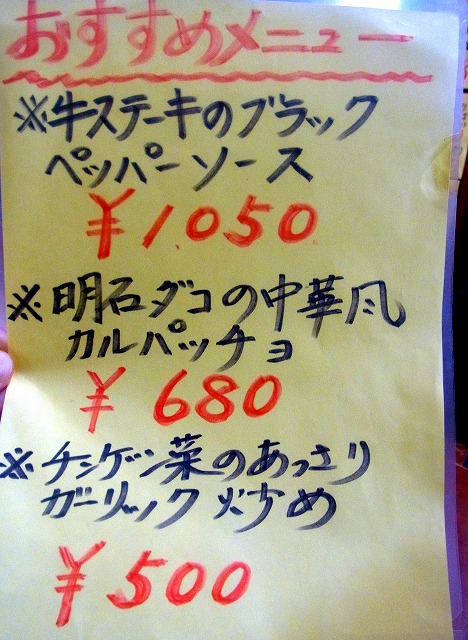 おすすめメニュー
※牛ステーキのブラック
ペッパーソース
¥1,050
※明石ダコの中華風
カルパッチョ
¥680
※チンゲン菜のあっさり
ガーリック炒め
¥500